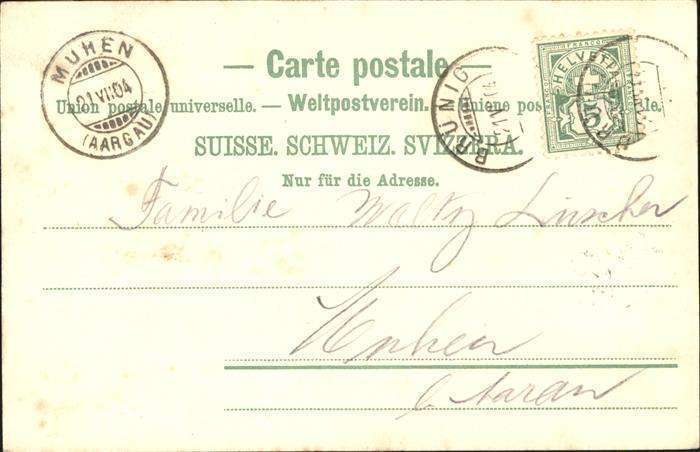 MUHEN
01.VI.04
(AARGAU)
— Carte postale. —
Union postale universelle. — Weltpostverein. — Unione postale universale.
SUISSE. SCHWEIZ. SVIZZERA.
Nur für die Adresse.
BRÜNIG
FRANCO
HELVETIA
5
Familie Lüscher
Muhen
b/Aarau